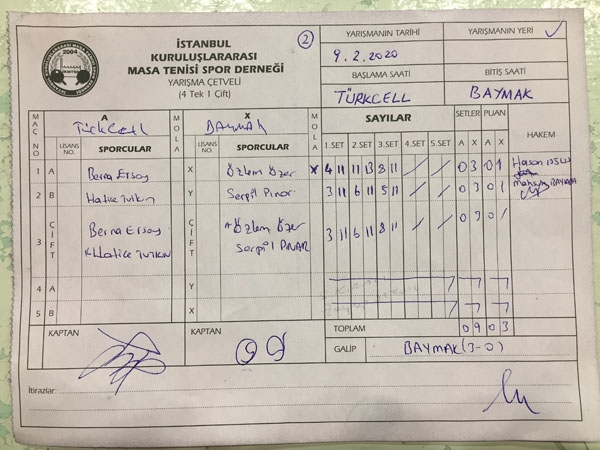 İSTANBUL
KURULUŞLARARASI
MASA TENİSİ SPOR DERNEĞİ
YARIŞMA ÇETVELİ
(4 Tek 1 Çift)
2004
2
YARIŞMANIN TARİHİ YARIŞMANIN YERİ
9.2.2020
BAŞLAMA SAATİ BİTİŞ SAATİ
TÜRKCELL BAYMAK
MAÇ NO A TürkCell MOLA X BAYMAK MOLA SAYILAR SETLER PUAN HAKEM
LİSANS NO. SPORCULAR LİSANS NO. SPORCULAR 1.SET 2.SET 3.SET 4.SET 5.SET A X A X
1 A Berna Ersoy X Özlem Özer X 4 11 11 13 8 11 / / 0 3 0 1 Hasan USLU
2 B Hatice Tutkun Y Serpil Pınar 3 11 6 11 5 11 / / 0 3 0 1 BAYMAK
3 ÇİFT Berna Ersoy Hatice TUTKUN ÇİFT Özlem Özer Serpil PINAR 3 11 6 11 8 11 / / 0 3 0 1
4 A Y
5 B X
KAPTAN KAPTAN TOPLAM 0 9 0 3
GALİP BAYMAK (3-0)
İtirazlar: